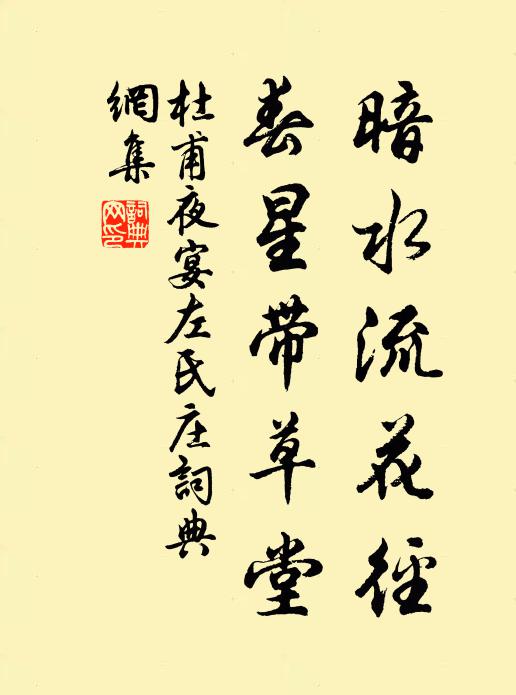 暗水流花径
春星带草堂
杜甫夜宴左氏庄詞典
網集
詞典
网印